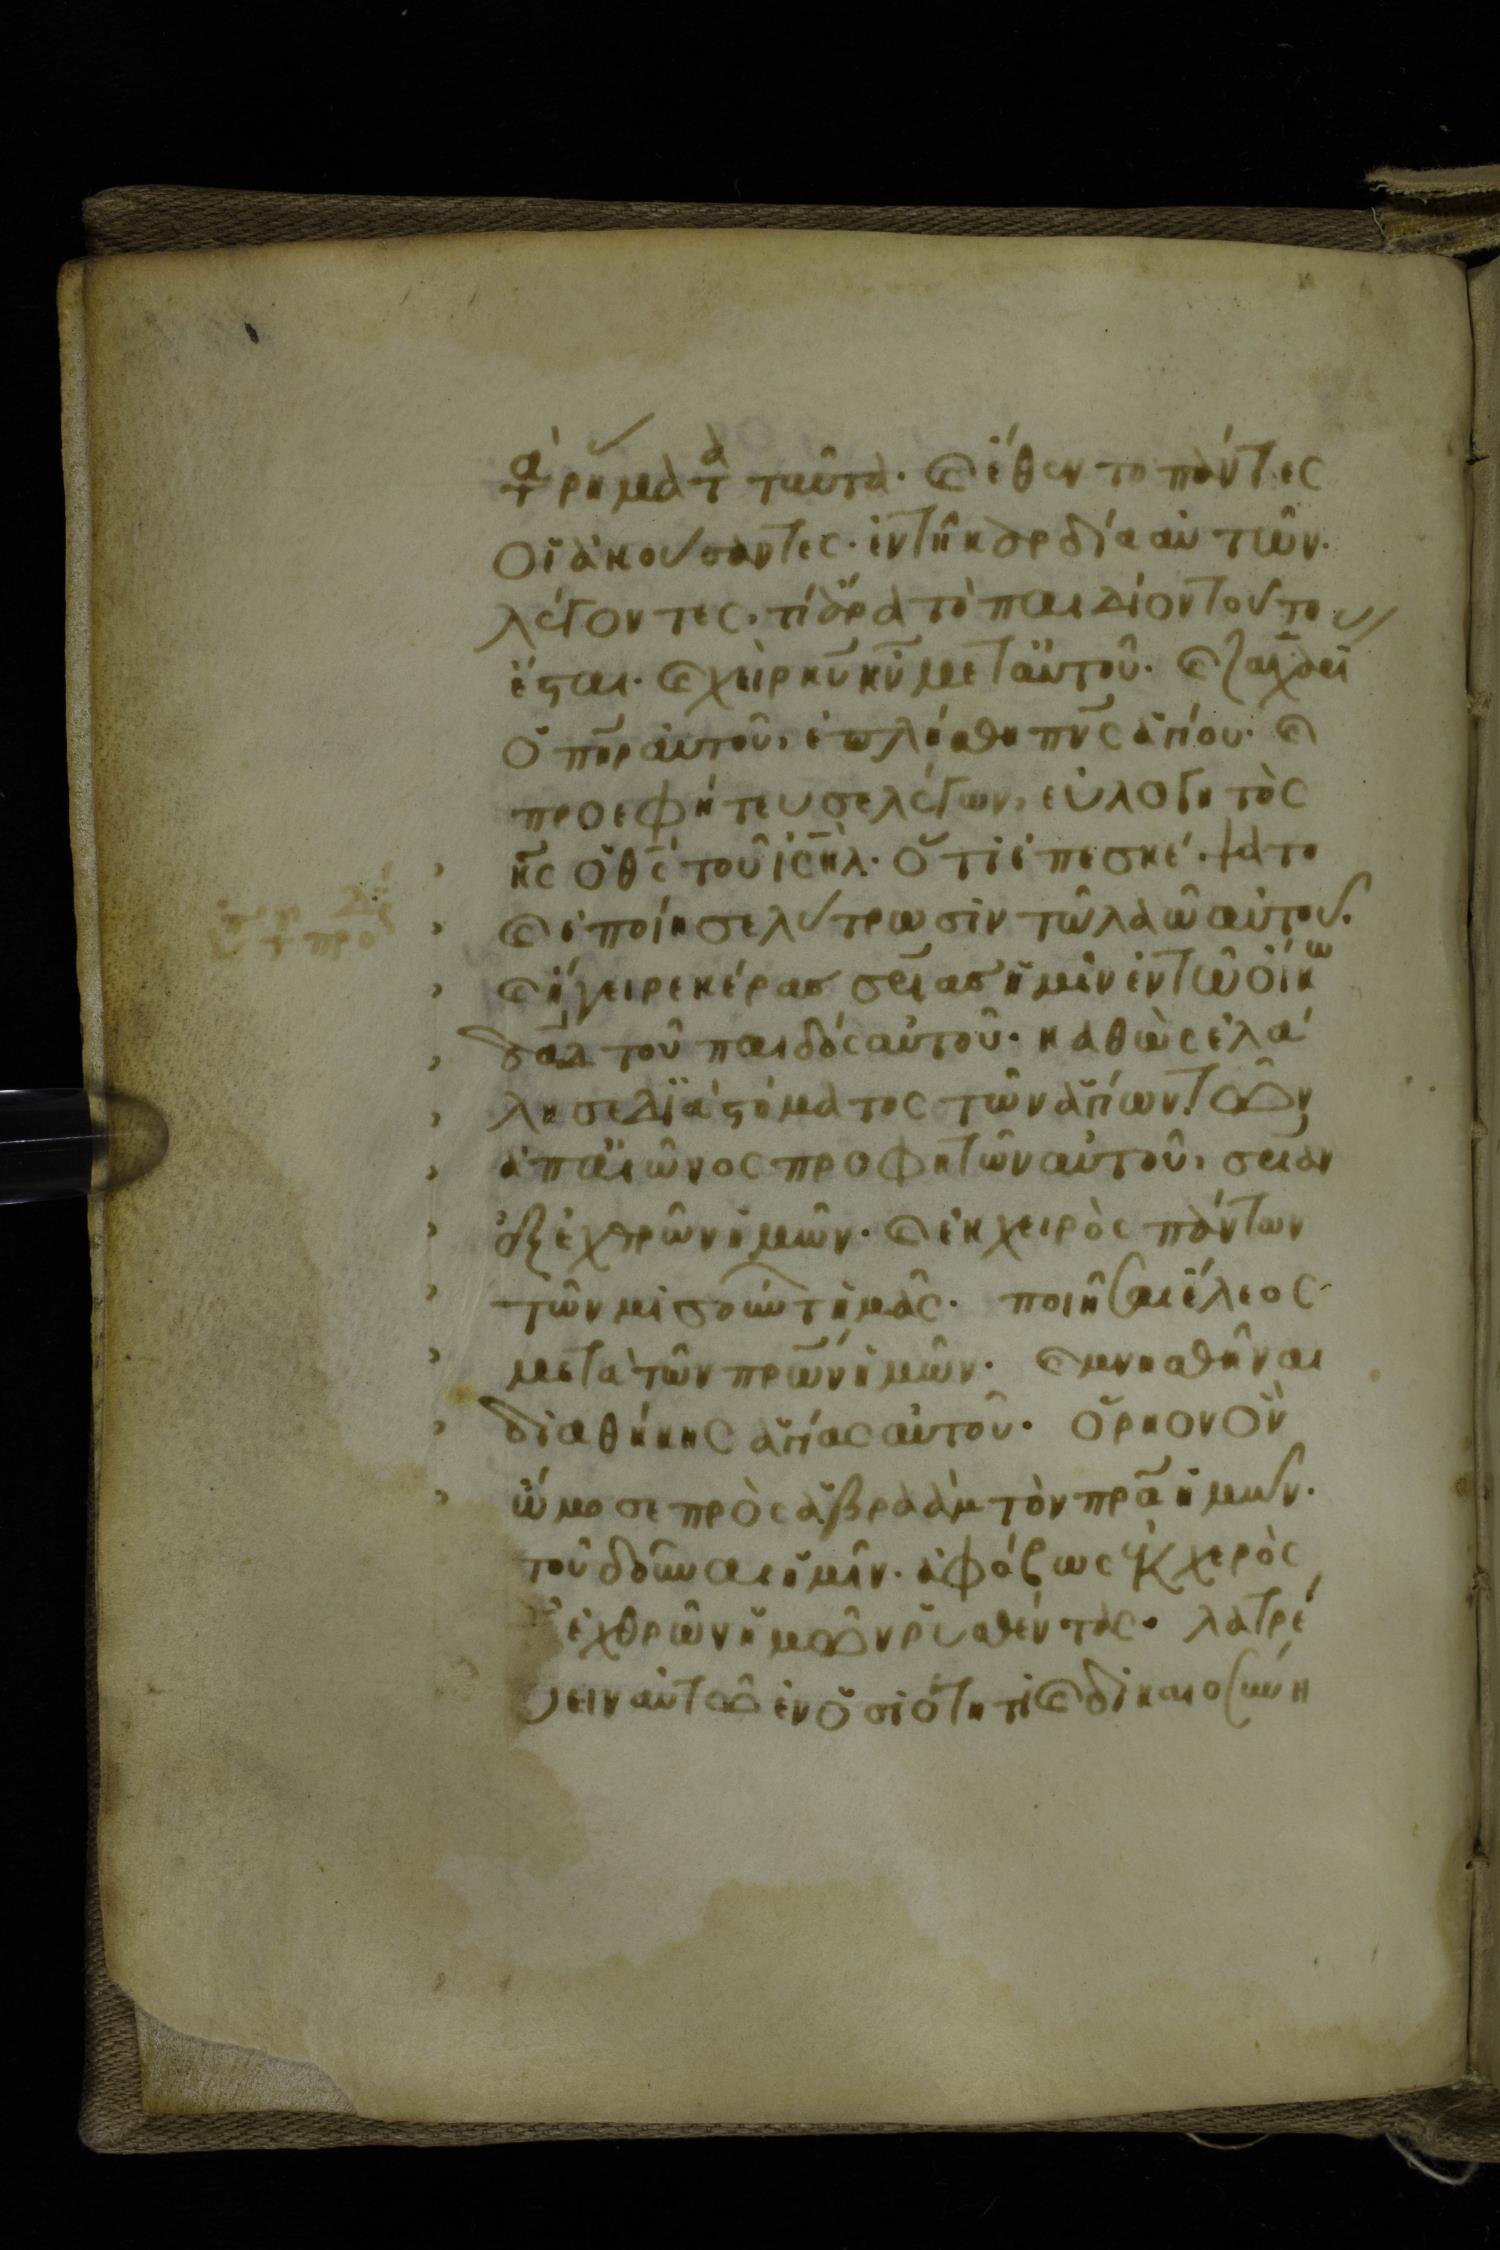 τὰ ρήματα ταῦτα. καὶ ἔθεντο πάντες
οἱ ἀκούσαντες. ἐν τῆ καρδία αὐτῶν.
λέγοντες. τί ἄρα τὸ παιδίον τοῦτο
ἔσται. καὶ χεὶρ κυ κυ μετ αὐτοῦ. καὶ ζαχαρί
ὁ πηρ αὐτοῦ, ἐπλήσθη πνς ἁγίου. καὶ
προεφήτευσε λέγων, εὐλογητὸς
κς ὁ θς τοῦ ιηλ. ὅτι ἐπεσκέψατο
καὶ ἐποίησε λύτρωσιν τῶ λαῶ αὐτοῦ.
καὶ ἤγειρε κέρας σρίας ἡμῖν ἐν τῶ οἴκω
δαδ τοῦ παιδὸς αὐτοῦ. καθὼς ἐλά
λησε διὰ στόματος τῶν ἁγίων τῶν
ἀπ αἰῶνος προφητῶν αὐτοῦ, σριαν
ἐξ ἐχθρῶν ἡμῶν. καὶ ἐκ χειρὸς πάντων
τῶν μισούντ ἡμᾶς. ποιῆσαι ἔλεος
μετὰ τῶν πρων ἡμῶν. καὶ μνησθῆναι
διαθήκης ἁγίας αὐτοῦ. ὅρκον ὃν
ὤμοσε πρὸς ἀβραὰμ τὸν πρα ἡμῶν.
τοῦ δοῦναι ἡμῖν. ἀφόβως ἐκ χερὸς
ἐχθρῶν ἡμῶν ρυσθέντας. λατρεύ
ειν αὐτῶ ἐν ὁσιότητι καὶ δικαιοσύνη